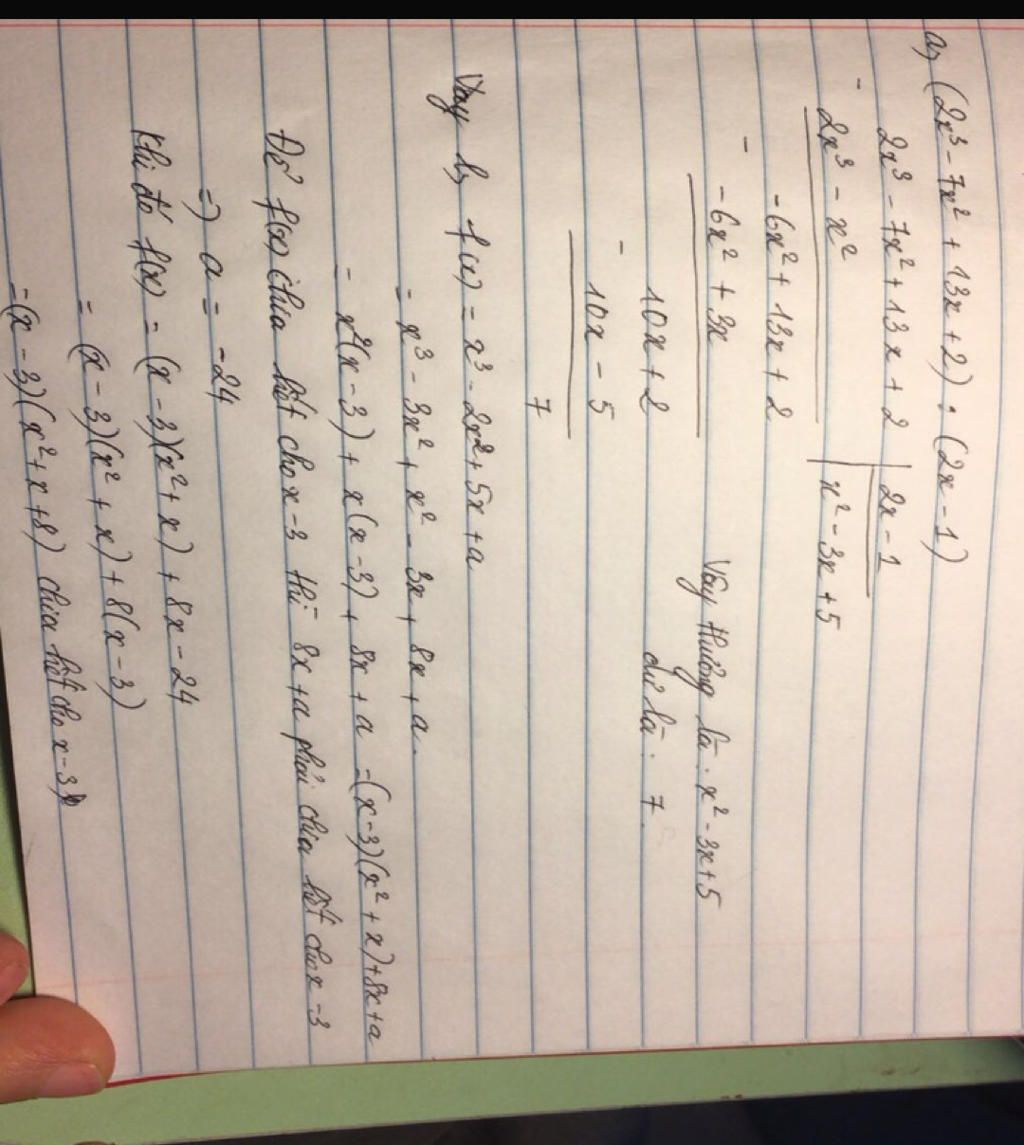 a, (2x³ - 7x² + 13x + 2) : (2x - 1)
2x³ - 7x² + 13x + 2 | 2x - 1
- 2x³ - x² | x² - 3x + 5
-6x² + 13x + 2
- -6x² + 3x Vậy thương là : x² - 3x + 5
10x + 2 dư là : 7.
- 10x - 5
7
Vậy b, f(x) = x³ - 2x² + 5x + a
= x³ - 3x² + x² - 3x + 8x + a.
= x²(x - 3) + x(x - 3) + 8x + a = (x - 3)(x² + x) + 8x + a
Để f(x) chia hết cho x - 3 thì 8x + a phải chia hết cho x - 3
=> a = -24
Khi đó f(x) = (x - 3)(x² + x) + 8x - 24
= (x - 3)(x² + x) + 8(x - 3)
= (x - 3)(x² + x + 8) chia hết cho x - 3